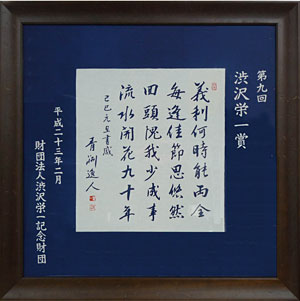 第九回
渋沢栄一賞
義利何時能両全
毎逢佳節思悠然
回頭愧我少成事
流水開花九十年
己巳元旦書感
青淵逸人
平成二十三年二月
財団法人渋沢栄一記念財団